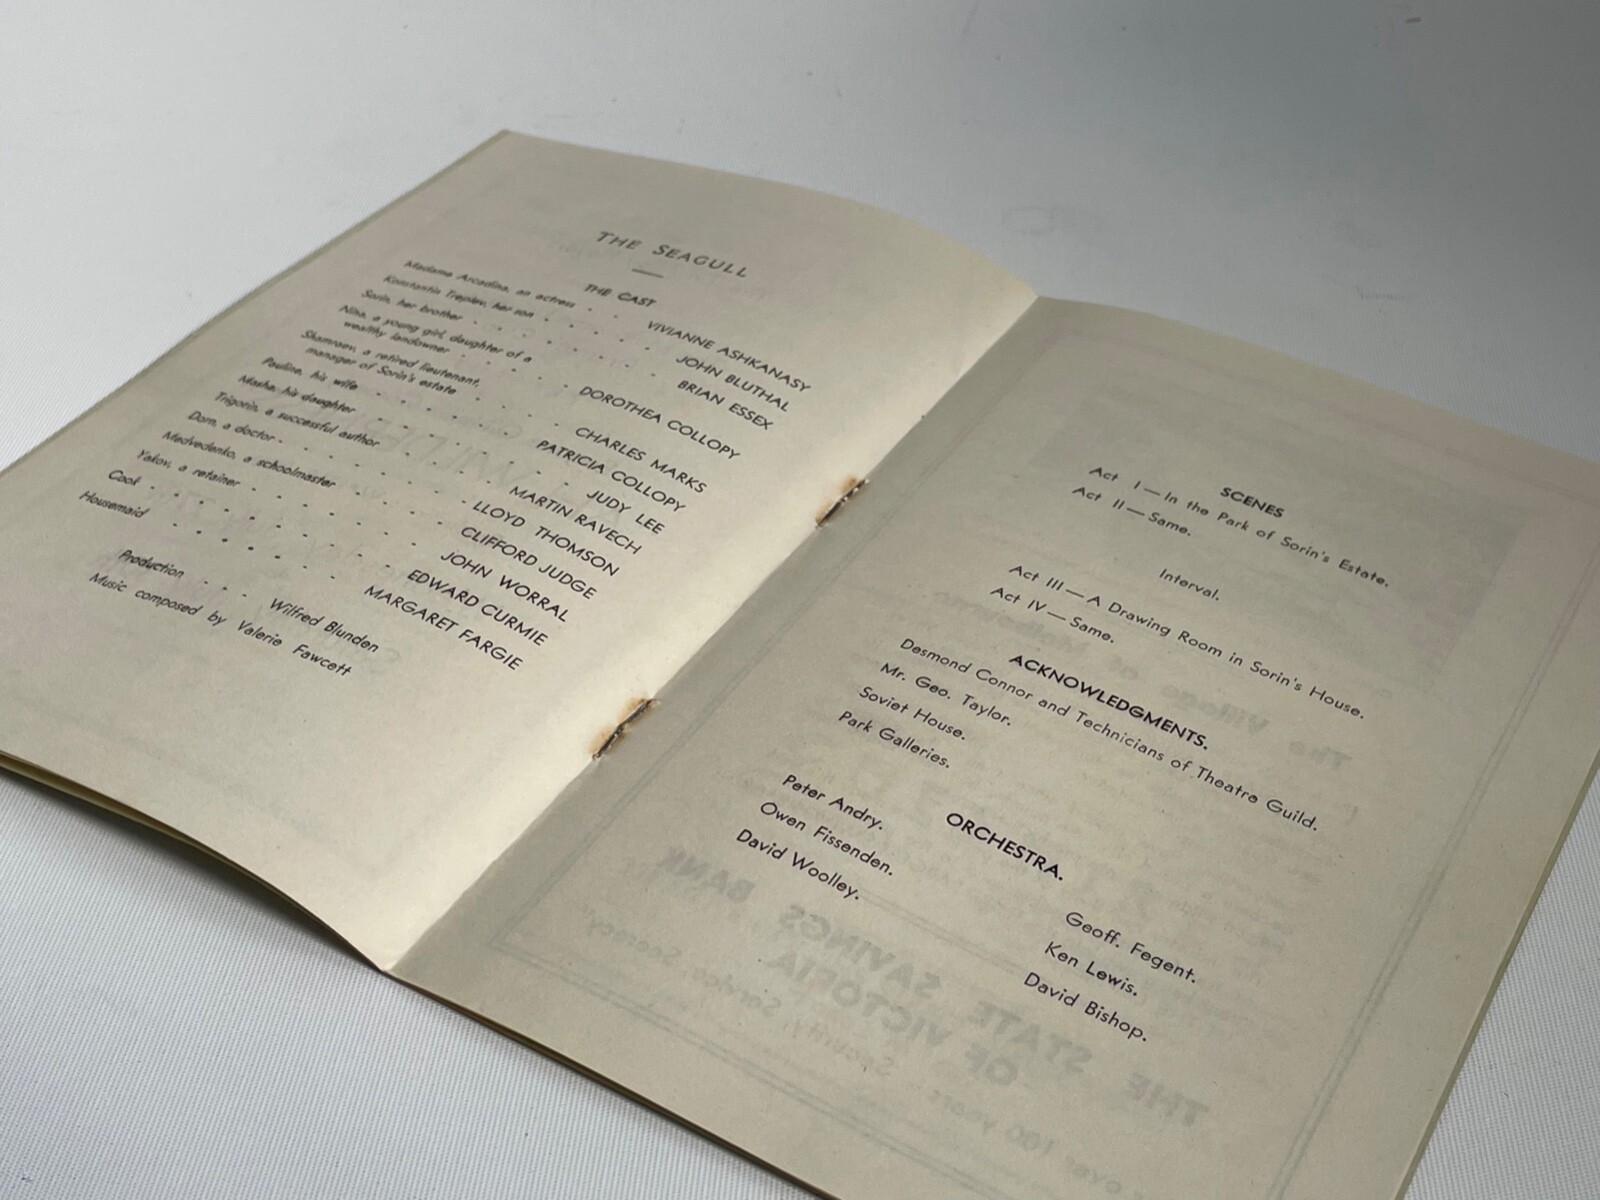 THE SEAGULL
THE CAST
Madame Arcadina, an actress . . VIVIANNE ASHKANASY
Konstantin Treplev, her son . . . . . JOHN BLUTHAL
Sorin, her brother . . . . . . . BRIAN ESSEX
Nina, a young girl, daughter of a
wealthy landowner . . . . . DOROTHEA COLLOPY
Shamraev, a retired lieutenant,
manager of Sorin's estate . . . . CHARLES MARKS
Pauline, his wife . . . . . . PATRICIA COLLOPY
Masha, his daughter . . . . . . . JUDY LEE
Trigorin, a successful author . . . . . MARTIN RAVECH
Dorn, a doctor . . . . . . . LLOYD THOMSON
Medvedenko, a schoolmaster . . . . CLIFFORD JUDGE
Yakov, a retainer . . . . . . . JOHN WORRAL
Cook . . . . . . . . . EDWARD CURMIE
Housemaid . . . . . . . MARGARET FARGIE
Production . . . Wilfred Blunden
Music composed by Valerie Fawcett
SCENES
Act I — In the Park of Sorin's Estate.
Act II — Same.
Interval.
Act III — A Drawing Room in Sorin's House.
Act IV — Same.
ACKNOWLEDGMENTS.
Desmond Connor and Technicians of Theatre Guild.
Mr. Geo. Taylor.
Soviet House.
Park Galleries.
ORCHESTRA.
Peter Andry.
Owen Fissenden.
David Woolley.
Geoff. Fegent.
Ken Lewis.
David Bishop.
THE STATE SAVINGS BANK
OF VICTORIA